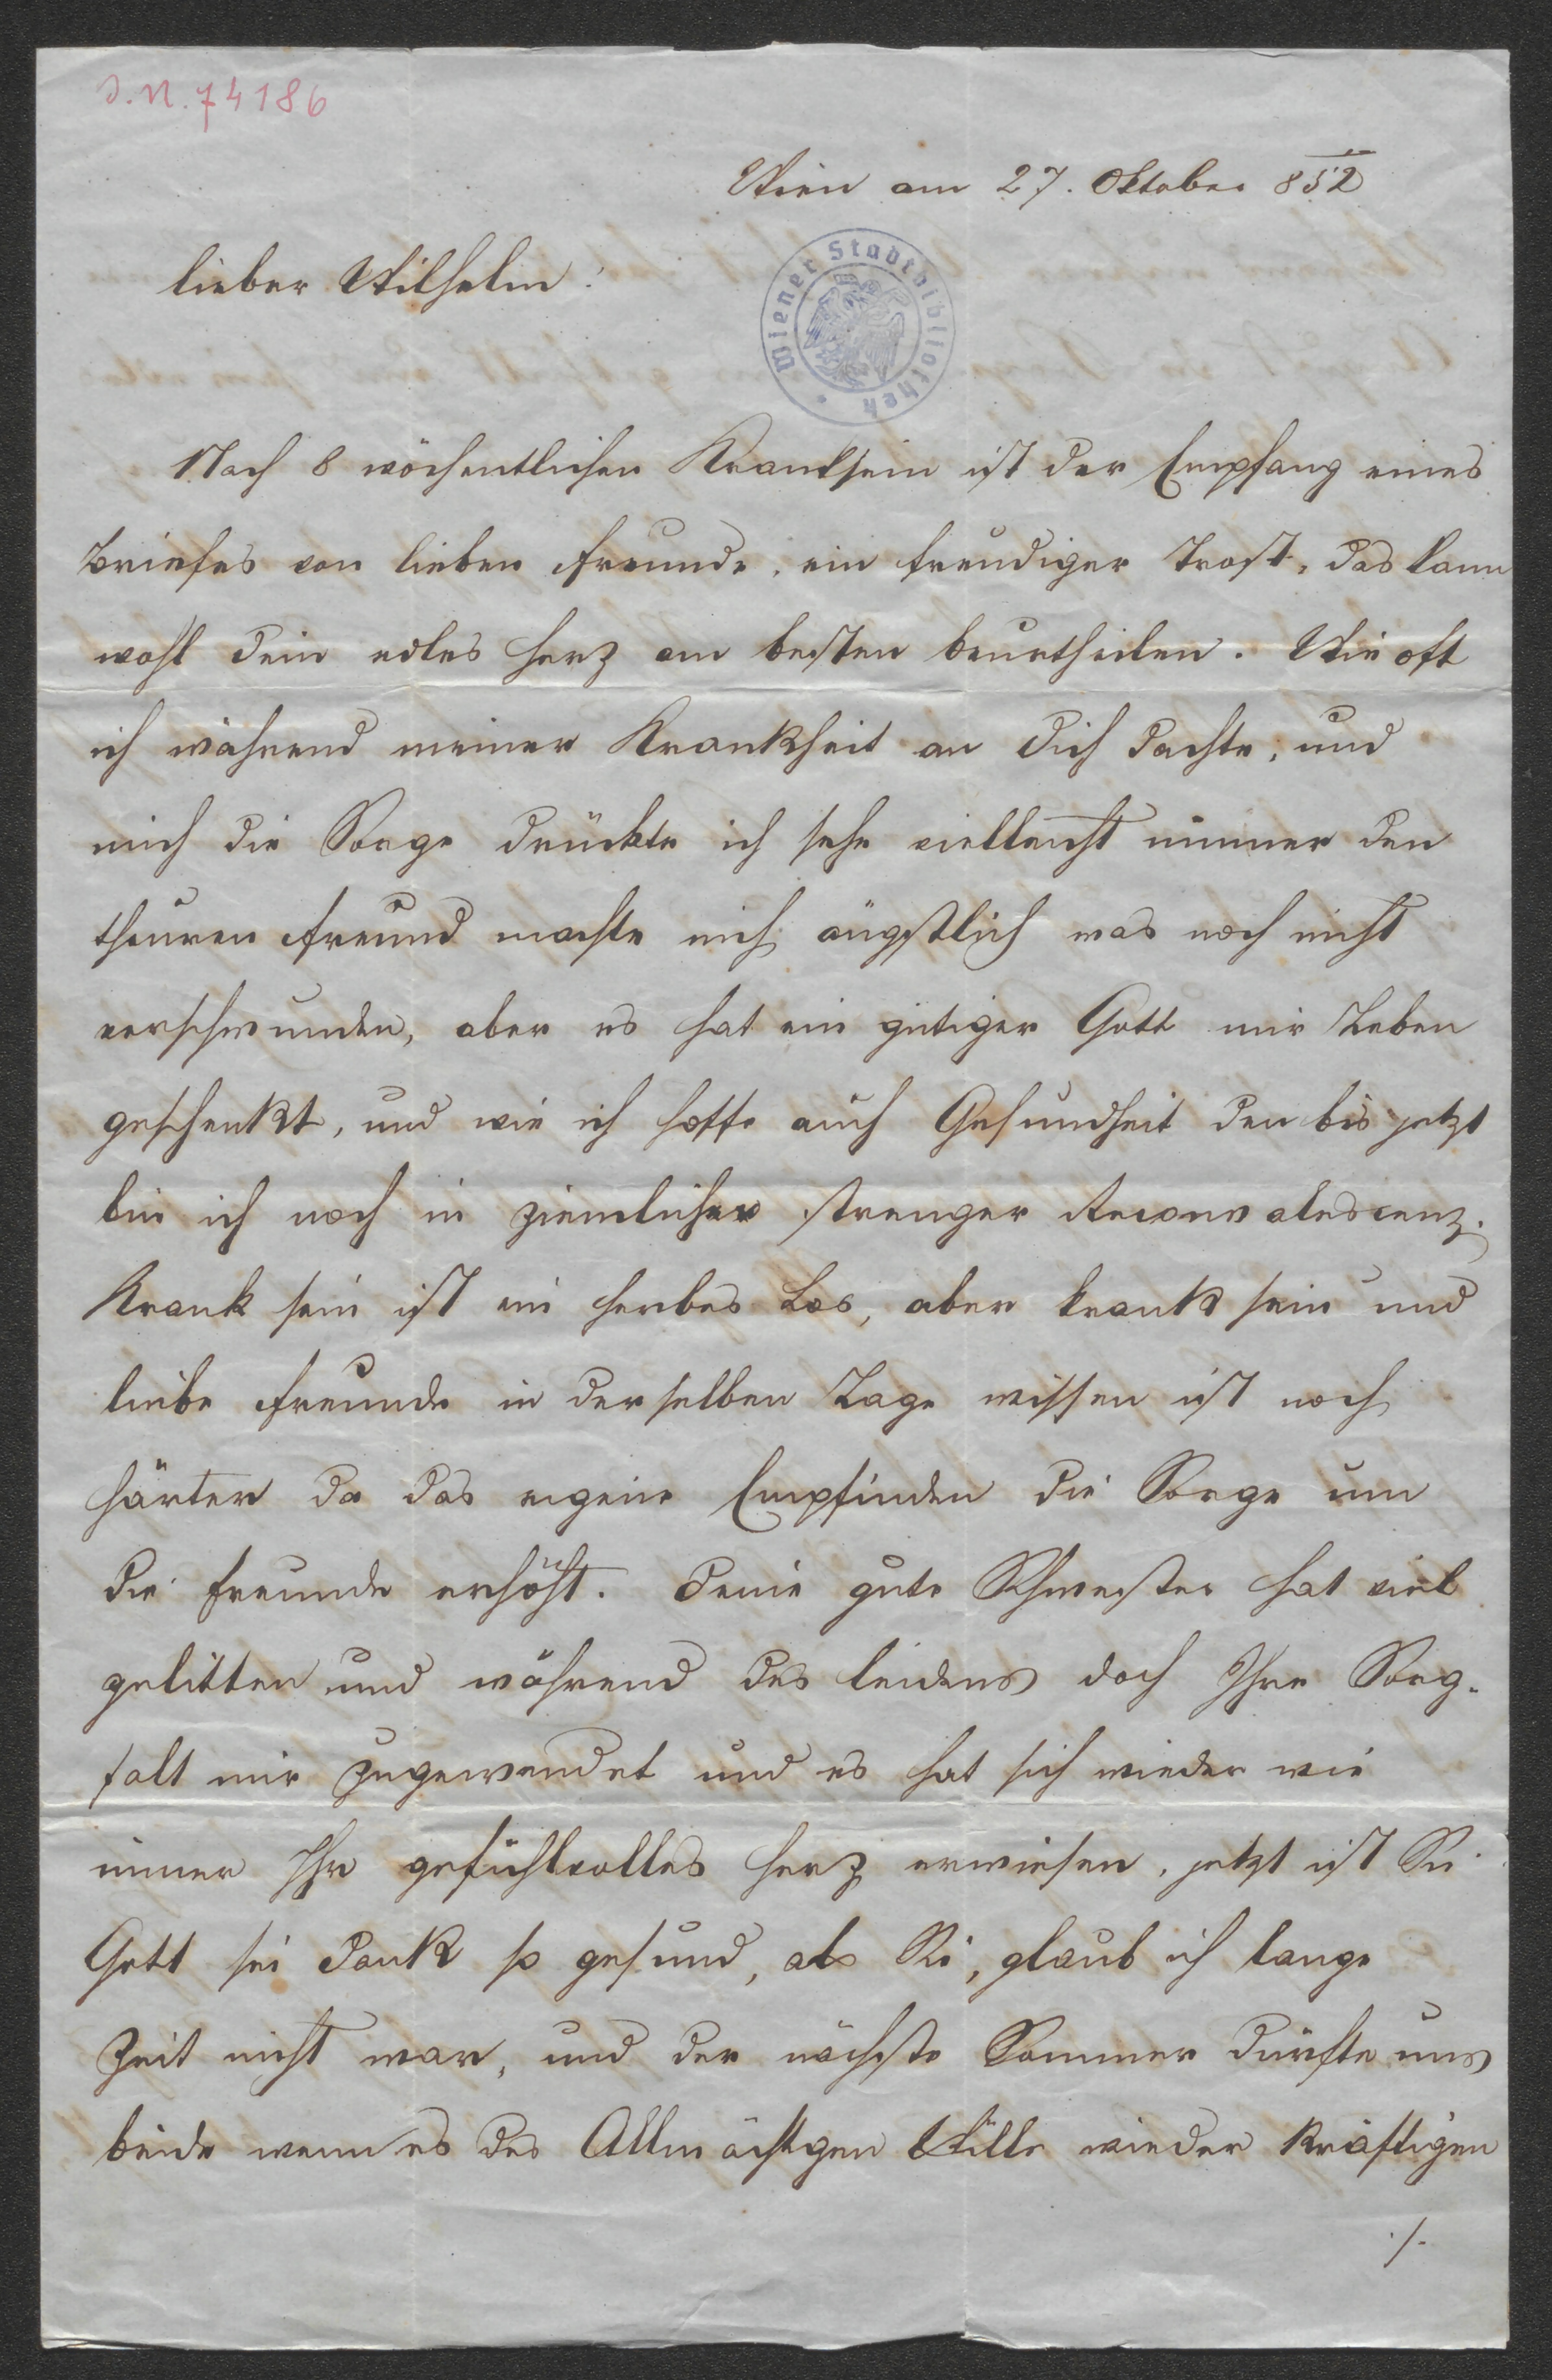 J.N. 74186
Wien am 27. Oktober 852
Wiener Stadtbibliothek
lieber Wilhelm!
Nach 8 wöchentlichen Kranksein ist der Empfang eines
Briefes von lieben Freunde, ein freudiger Trost, das kann
wohl dein edles Herz am besten beurtheilen. Wie oft
ich während meiner Krankheit an dich dachte, und
mich die Sorge drückte ich sehe vielleicht nimmer den
theuren Freund machte mich ängstlich was noch nicht
verschwunden, aber es hat ein gütiger Gott mir Leben
geschenkt, und wie ich hoffe auch Gesundheit den bis jetzt
bin ich noch in ziemlicher strenger Reconvalescenz.
Krank sein ist ein herbes Los, aber krank sein und
liebe Freunde in derselben Lage wissen ist noch
härter da das eigene Empfinden die Sorge um
die Freunde erhöht. Deine gute Schwester hat viel
gelitten und während des leidens doch Ihre Sorg-
falt mir zugewendet und es hat sich wieder wie
immer Ihr gefühlvolles Herz erwiesen, jetzt ist Sie
Gott sei Dank so gesund, als Sie, glaub ich lange
Zeit nicht war, und der nächste Sommer dürfte uns
beide wenn es des Allmächtgen Wille wieder kräftigen
./.